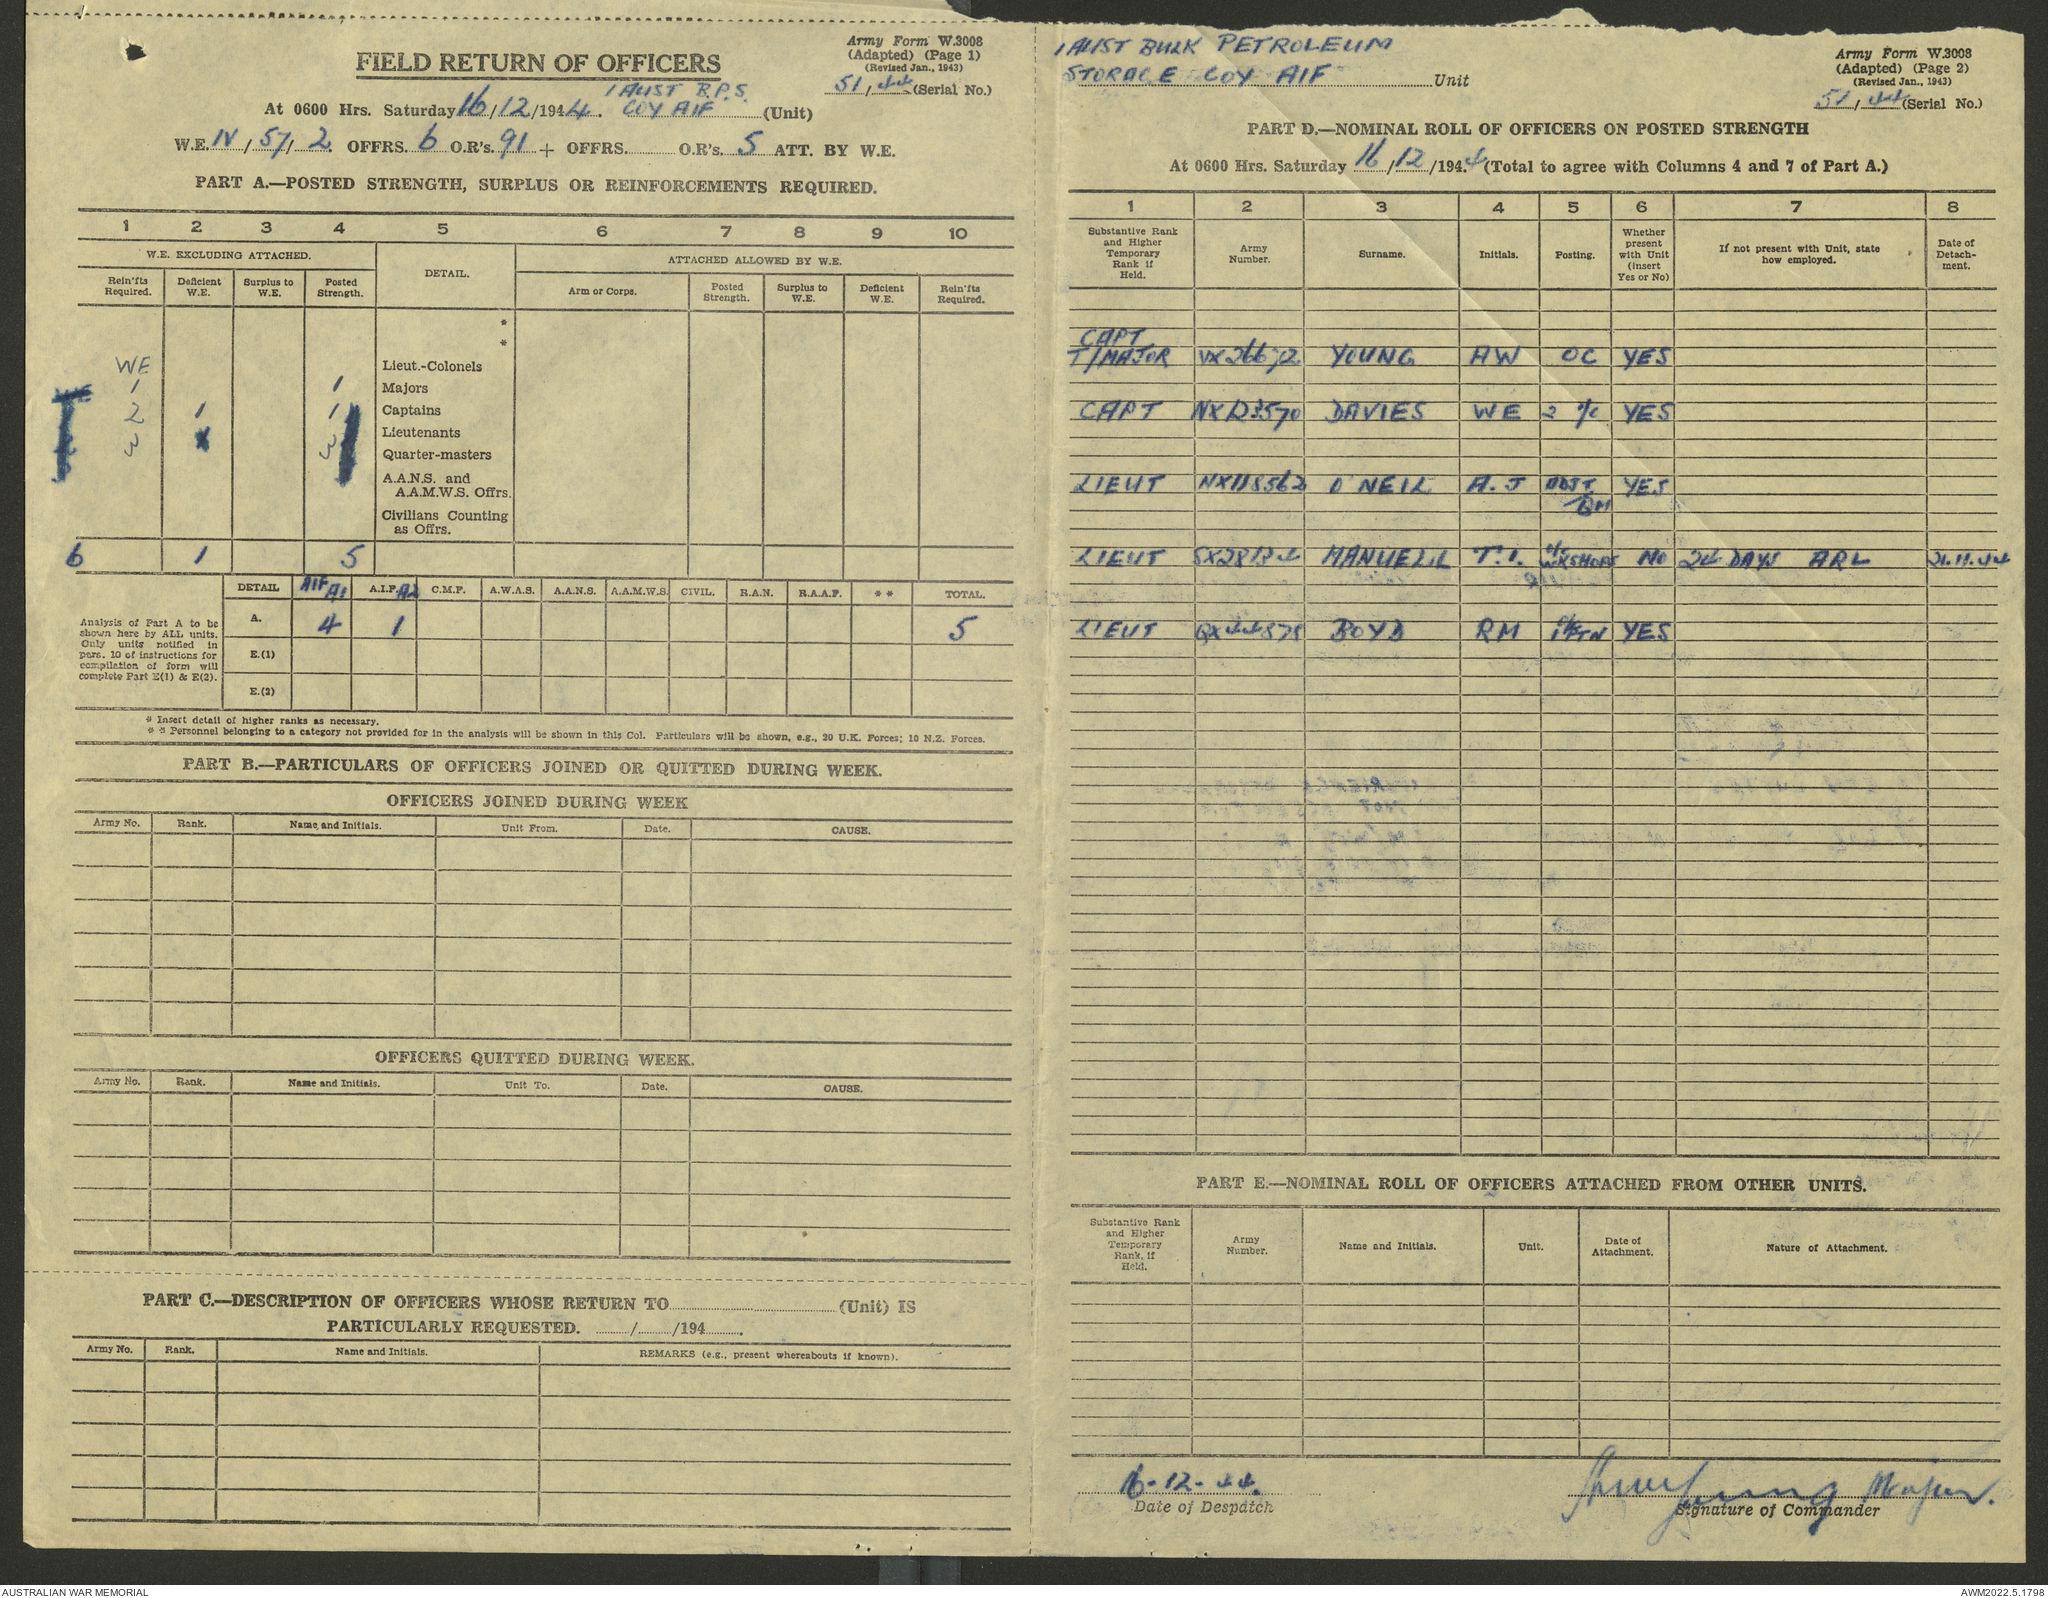 Army Form W.3008
(Adapted) (Page 1)
(Revised Jan., 1943)
51/44 (Serial No.)
FIELD RETURN OF OFFICERS
1 AUST B.P.S.
At 0600 Hrs. Saturday 16/12/1944. COY AIF (Unit)
W.E. IV/57/2 OFFRS. 6 O.R's. 91 + OFFRS. O.R's. 5 ATT. BY W.E.
PART A.—POSTED STRENGTH, SURPLUS OR REINFORCEMENTS REQUIRED.
1 2 3 4 5 6 7 8 9 10
W.E. EXCLUDING ATTACHED. DETAIL. ATTACHED ALLOWED BY W.E.
Rein'fts Required. Deficient W.E. Surplus to W.E. Posted Strength. Arm or Corps. Posted Strength. Surplus to W.E. Deficient W.E. Rein'fts Required.
*
*
WE Lieut.-Colonels
1 1 Majors
2 1 1 Captains
3 3 Lieutenants
Quarter-masters
A.A.N.S. and
A.A.M.W.S. Offrs.
Civilians Counting
as Offrs.
6 1 5
DETAIL AIF A1 A.I.F. A2 C.M.F. A.W.A.S. A.A.N.S. A.A.M.W.S. CIVIL. R.A.N. R.A.A.F. * * TOTAL.
Analysis of Part A to be
shown here by ALL units.
Only units notified in
para. 10 of instructions for
compilation of form will
complete Part E(1) & E(2).
A. 4 1 5
E.(1)
E.(2)
* Insert detail of higher ranks as necessary.
* * Personnel belonging to a category not provided for in the analysis will be shown in this Col. Particulars will be shown, e.g., 20 U.K. Forces; 10 N.Z. Forces.
PART B.—PARTICULARS OF OFFICERS JOINED OR QUITTED DURING WEEK.
OFFICERS JOINED DURING WEEK
Army No. Rank. Name and Initials. Unit From. Date. CAUSE.
OFFICERS QUITTED DURING WEEK.
Army No. Rank. Name and Initials. Unit To. Date. CAUSE.
PART C.—DESCRIPTION OF OFFICERS WHOSE RETURN TO (Unit) IS
PARTICULARLY REQUESTED. / /194 .
Army No. Rank. Name and Initials. REMARKS (e.g., present whereabouts if known).
1 AUST BULK PETROLEUM
STORAGE COY AIF Unit
Army Form W.3008
(Adapted) (Page 2)
(Revised Jan., 1943)
51/44 (Serial No.)
PART D.—NOMINAL ROLL OF OFFICERS ON POSTED STRENGTH
At 0600 Hrs. Saturday 16/12/194.4 (Total to agree with Columns 4 and 7 of Part A.)
1 2 3 4 5 6 7 8
Substantive Rank and Higher Temporary Rank if Held. Army Number. Surname. Initials. Posting. Whether present with Unit (insert Yes or No) If not present with Unit, state how employed. Date of Detach-ment.
CAPT
T/MAJOR VX26672 YOUNG AW OC YES
CAPT NX123570 DAVIES WE 2 I/C YES
LIEUT NX118562 O'NEIL A.J ADJT YES
QM
LIEUT SX28134 MANUELL T.I. WKSHOPS NO 24 DAYS ARL 21.11.44
LIEUT QX44878 BOYD RM YES
PART E.—NOMINAL ROLL OF OFFICERS ATTACHED FROM OTHER UNITS.
Substantive Rank and Higher Temporary Rank, if Held. Army Number. Name and Initials. Unit. Date of Attachment. Nature of Attachment.
16-12-44.
Date of Despatch
Young Major.
Signature of Commander
AUSTRALIAN WAR MEMORIAL
AWM2022.5.1798